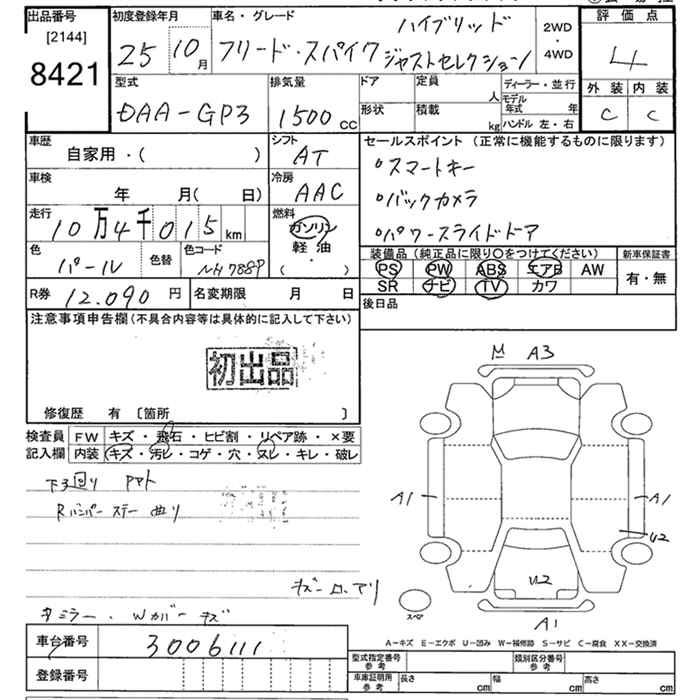 出品番号
[2144]
8421
初度登録年月
25 10月
車名・グレード
ハイブリッド
フリード・スパイク ジャストセレクション
2WD
・
4WD
評価点
4
外装 内装
C C
型式
DAA-GP3
排気量
1500 cc
ドア 定員
人
形状 積載
kg
ディーラー・並行
モデル年式 年
ハンドル 左・右
車歴
自家用・( )
シフト
AT
車検
年 月( 日)
冷房
AAC
走行
10万4千015 km
燃料
ガソリン
軽油
( ・ )
色
パール
色替
色コード
NH788P
R券 12.090 円
名変期限 月 日
セールスポイント (正常に機能するものに限ります)
°スマートキー
°バックカメラ
°パワースライドドア
装備品(純正品に限り○をつけてください)
PS PW ABS エアB AW
SR ナビ TV カワ
新車保証書
有・無
後日品
注意事項申告欄(不具合内容等は具体的に記入して下さい)
初出品
修復歴 有 〔箇所 〕
検査員記入欄
FW キズ・飛石・ヒビ割・リペア跡・×要
内装 キズ・汚レ・コゲ・穴・スレ・キレ・破レ
下回り
Rバンパー ステー 曲り
キズ
ミラー . Wカバー キズ
車台番号
3006111
登録番号
M A3
A1 A1
U2
U2
A1
スペア
A-キズ E-エクボ U-凹み W-補修跡 S-サビ C-腐食 XX-交換済
型式指定番号 参考
類別区分番号 参考
車庫証明用 参考
長さ cm 幅 cm 高さ cm